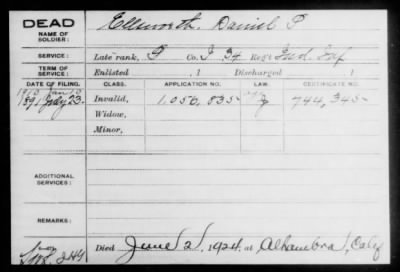 DEAD
NAME OF SOLDIER:
Ellsworth, Daniel P
SERVICE:
Late rank, P Co. I 34 Reg't Ind. Inf
TERM OF SERVICE:
Enlisted , 1 Discharged , 1
DATE OF FILING.
CLASS.
APPLICATION NO.
LAW.
CERTIFICATE NO.
1891 July 23
Invalid,
1,056,835
744,345
Widow,
Minor,
ADDITIONAL SERVICES:
REMARKS:
Died June 2, 1924, at Alhambra, Calif